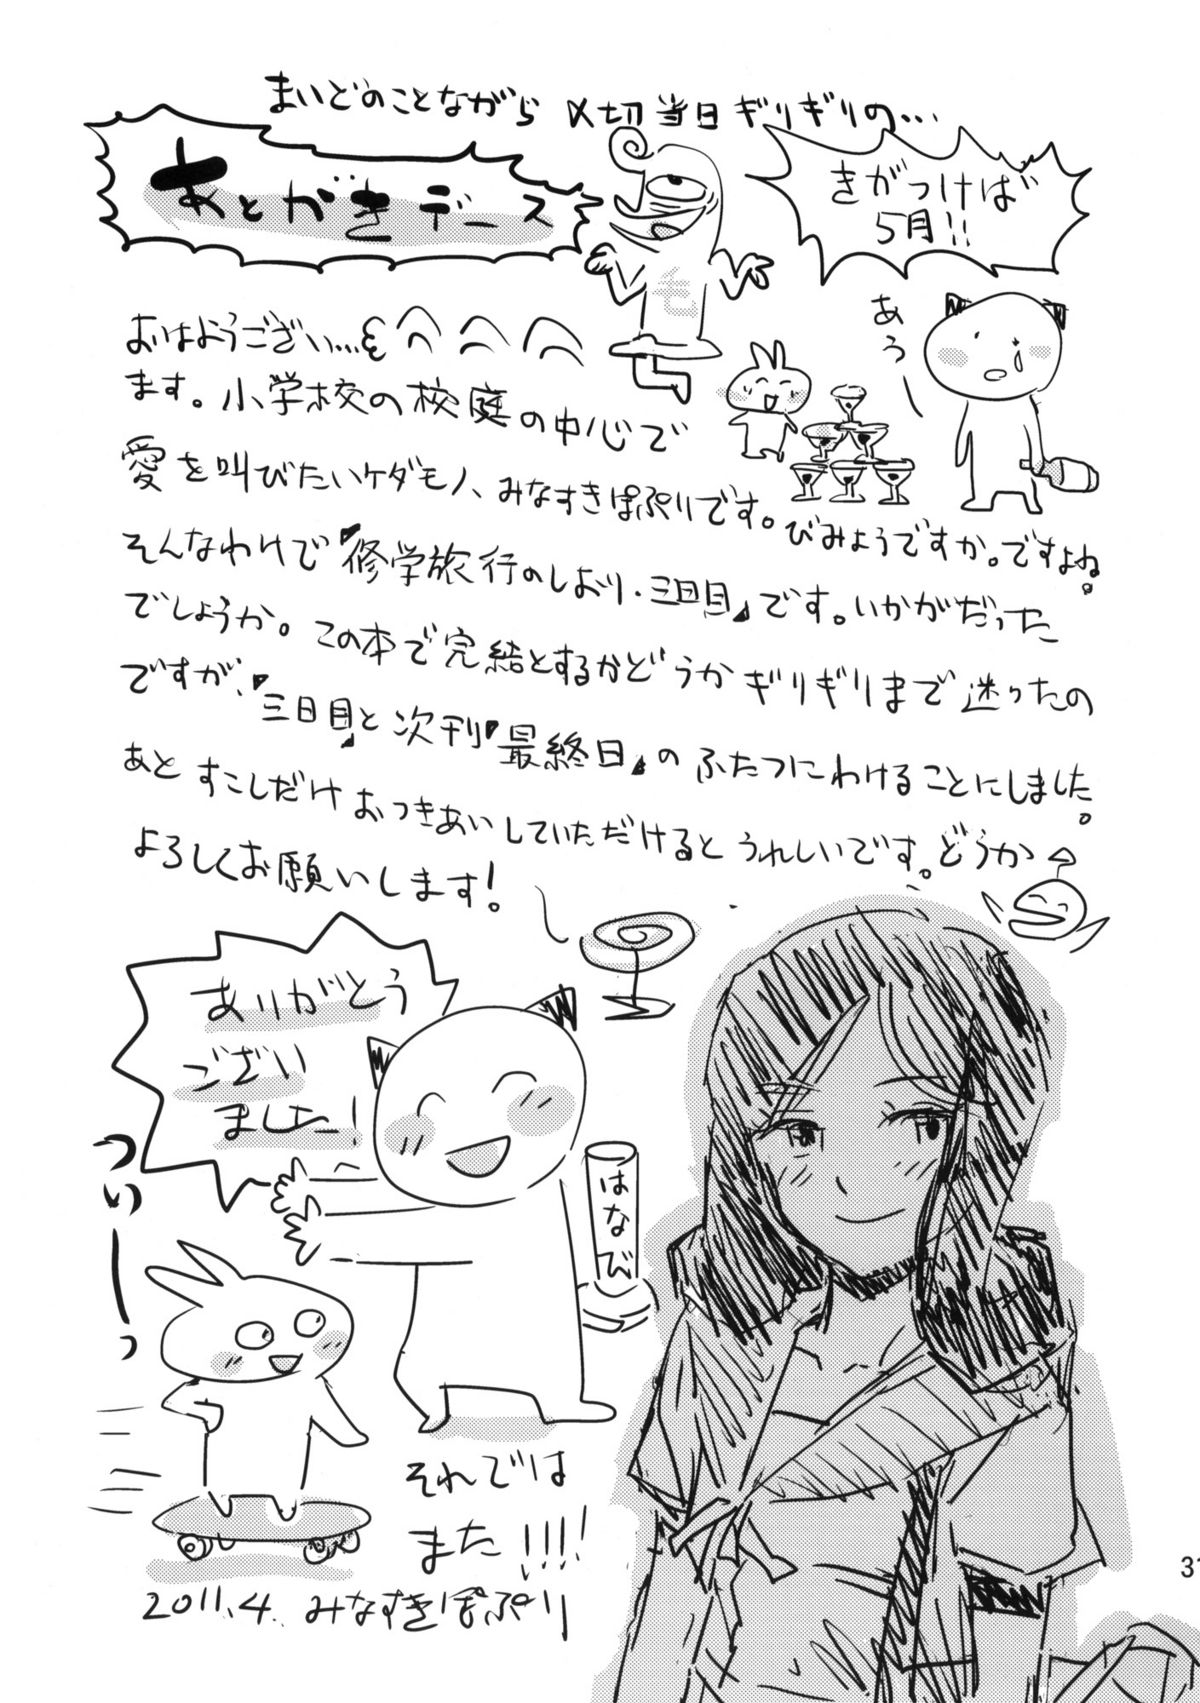 まいどのことながら 〆切当日ギリギリの…
あとがきデース
きがつけば
5月!!
あう
毛
おはようござい…
ます。小学校の校庭の中心で
愛を叫びたいケダモノ、みなすきぽぷりです。びみょうですか。ですよね。
そんなわけで『修学旅行のしおり・三日目』です。いかがだった
でしょうか。この本で完結とするかどうかギリギリまで迷ったの
ですが、『三日目』と次刊『最終日』のふたつにわけることにしました。
あとすこしだけおつきあいしていただけるとうれしいです。どうか
よろしくお願いします!
ありがとう
ござい
ましたー!
はなび
つぃーっ
それでは
また!!!!
2011.4. みなすきぽぷり